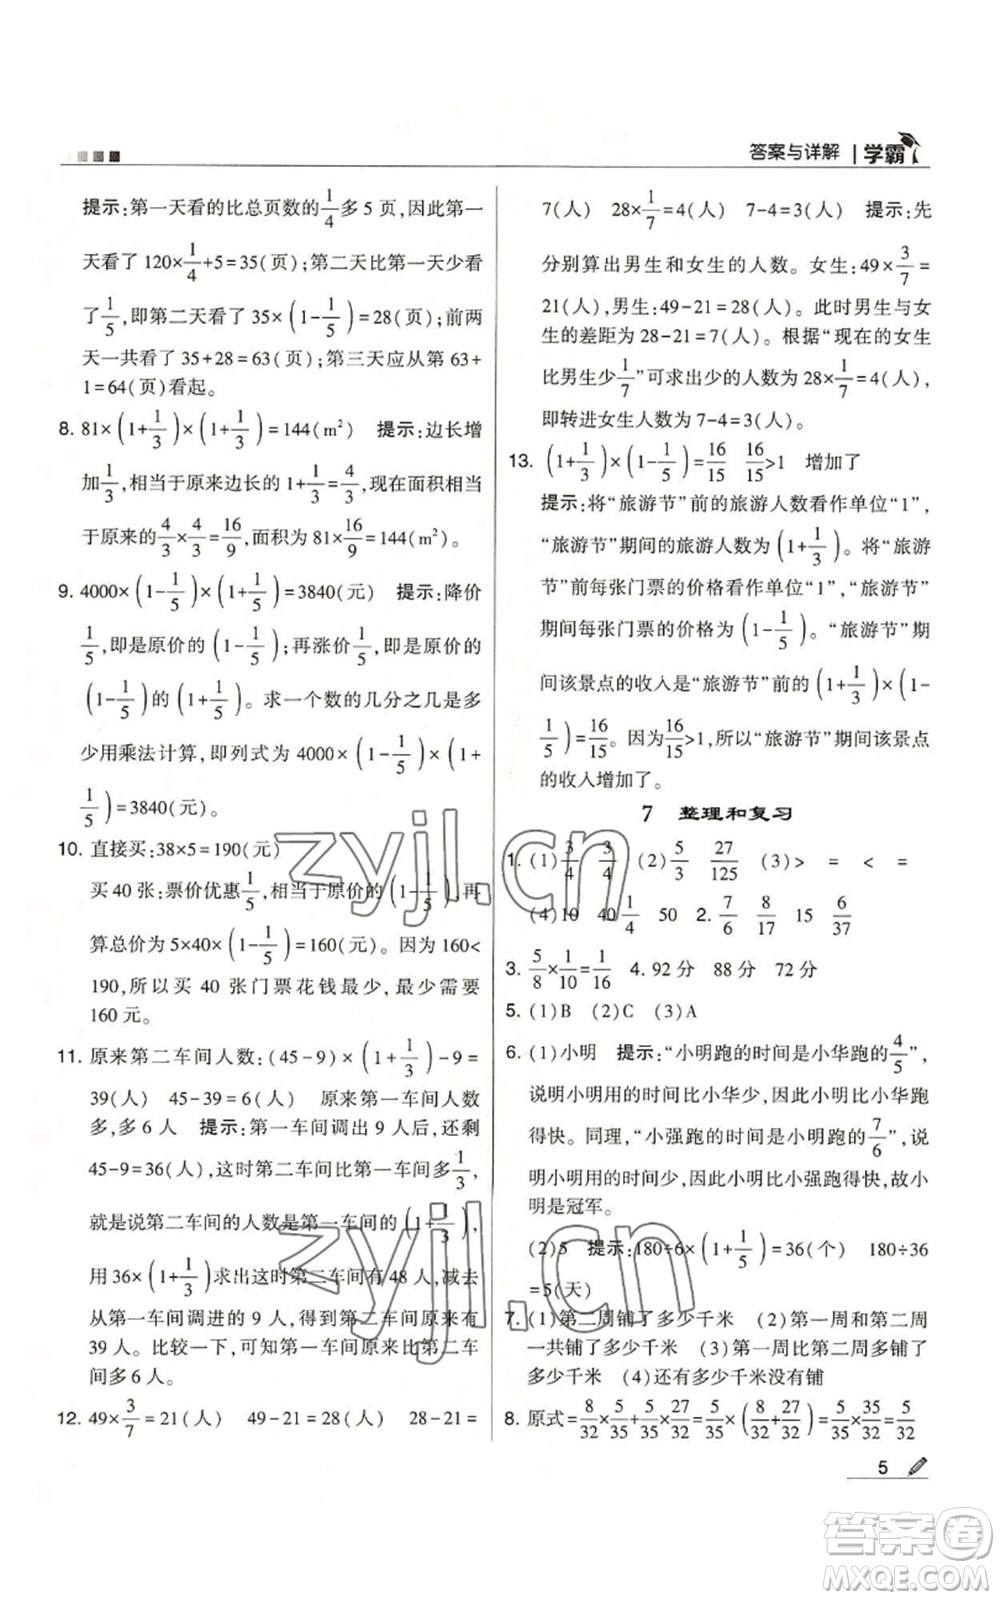 答案与详解 学霸
提示:第一天看的比总页数的1/4多5页,因此第一
天看了120×1/4+5=35(页);第二天比第一天少看
了1/5,即第二天看了35×(1-1/5)=28(页);前两
天一共看了35+28=63(页);第三天应从第63+
1=64(页)看起。
8. 81×(1+1/3)×(1+1/3)=144(m²) 提示:边长增
加1/3,相当于原来边长的1+1/3=4/3,现在面积相当
于原来的4/3×4/3=16/9,面积为81×16/9=144(m²)。
9. 4000×(1-1/5)×(1+1/5)=3840(元) 提示:降价
1/5,即是原价的(1-1/5);再涨价1/5,即是原价的
(1-1/5)的(1+1/5)。求一个数的几分之几是多
少用乘法计算,即列式为4000×(1-1/5)×(1+
1/5)=3840(元)。
10. 直接买:38×5=190(元)
买40张:票价优惠1/5,相当于原价的(1-1/5),再
算总价为5×40×(1-1/5)=160(元)。因为160<
190,所以买40张门票花钱最少,最少需要
160元。
11. 原来第二车间人数:(45-9)×(1+1/3)-9=
39(人) 45-39=6(人) 原来第一车间人数
多,多6人 提示:第一车间调出9人后,还剩
45-9=36(人),这时第二车间比第一车间多1/3,
就是说第二车间的人数是第一车间的(1+1/3),
用36×(1+1/3)求出这时第二车间有48人,减去
从第一车间调进的9人,得到第二车间原来有
39人。比较一下,可知第一车间原来比第二车
间多6人。
12. 49×3/7=21(人) 49-21=28(人) 28-21=
7(人) 28×1/7=4(人) 7-4=3(人) 提示:先
分别算出男生和女生的人数。女生:49×3/7=
21(人),男生:49-21=28(人)。此时男生与女
生的差距为28-21=7(人)。根据“现在的女生
比男生少1/7”可求出少的人数为28×1/7=4(人),
即转进女生人数为7-4=3(人)。
13. (1+1/3)×(1-1/5)=16/15 16/15>1 增加了
提示:将“旅游节”前的旅游人数看作单位“1”,
“旅游节”期间的旅游人数为(1+1/3)。将“旅游
节”前每张门票的价格看作单位“1”,“旅游节”
期间每张门票的价格为(1-1/5)。“旅游节”期
间该景点的收入是“旅游节”前的(1+1/3)×(1-
1/5)=16/15。因为16/15>1,所以“旅游节”期间该景点
的收入增加了。
7 整理和复习
1. (1)3/4 3/4 (2)5/3 27/125 (3)> = < =
(4)10 40 1/4 50 2. 7/6 8/17 15 6/37
3. 5/8×1/10=1/16 4. 92分 88分 72分
5. (1)B (2)C (3)A
6. (1)小明 提示:“小明跑的时间是小华跑的4/5”,
说明小明用的时间比小华少,因此小明比小华跑
得快。同理,“小强跑的时间是小明跑的7/6”,说
明小明用的时间少,小明比小强跑得快,故小
明是冠军。
(2)5 提示:180÷6×(1+1/5)=36(个) 180÷36
=5(天)
7. (1)第二周铺了多少千米 (2)第一周和第二周
一共铺了多少千米 (3)第一周比第二周多铺了
多少千米 (4)还有多少千米没有铺
8. 原式=8/32×5/35+5/35×27/32=5/35×(8/32+27/32)=5/35×35/32=5/32
5
zyjl.cn
zyjl.cn
答案卷
MXQE.COM